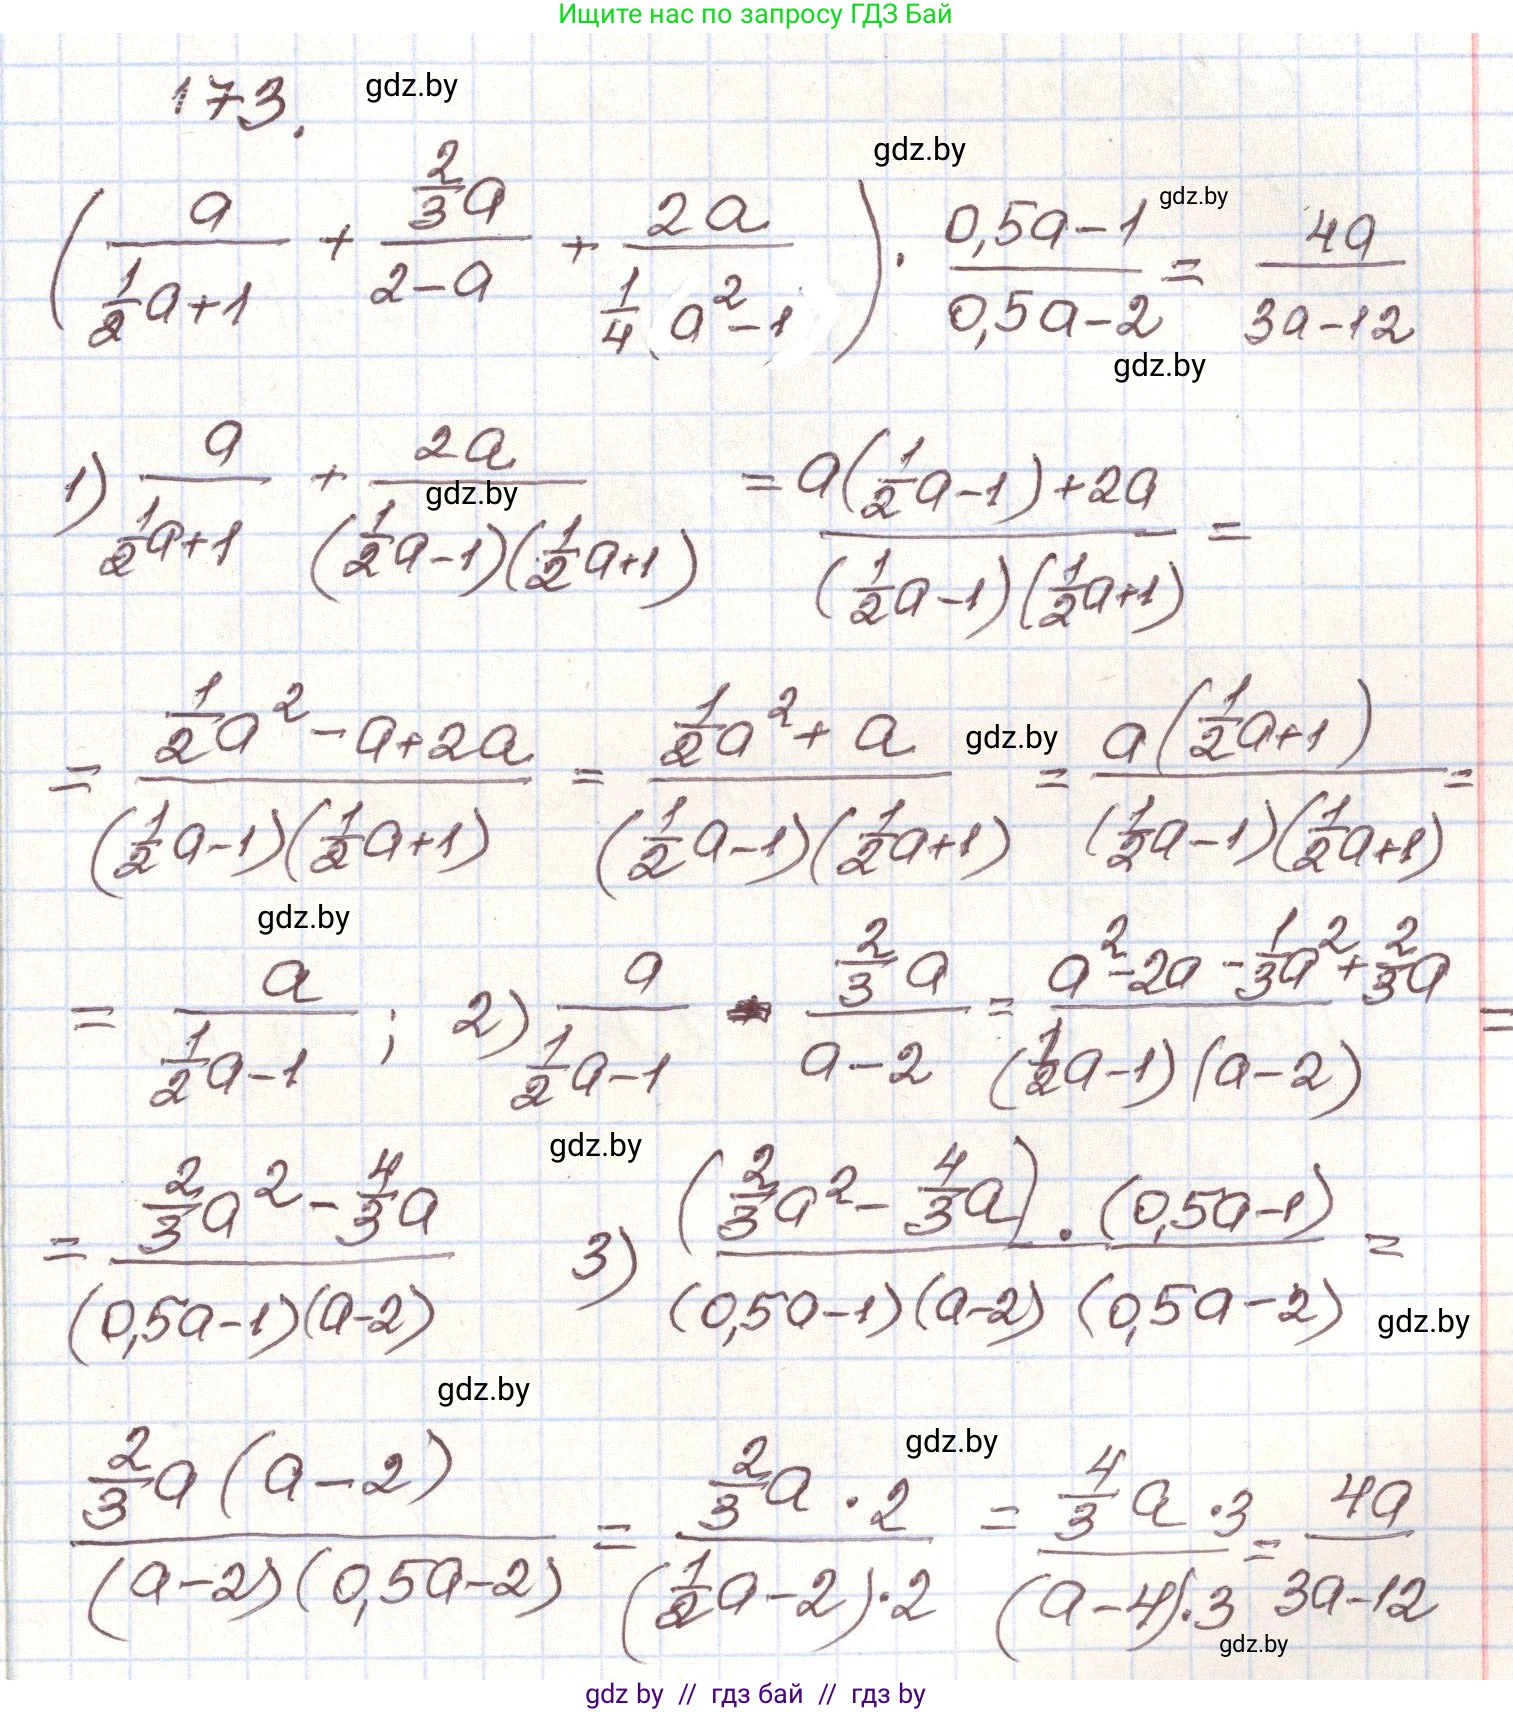 Ищите нас по запросу ГДЗ Бай
173. gdz.by
gdz.by
gdz.by
(a/(1/2 a+1) + (2/3 a)/(2-a) + 2a/(1/4 a²-1)) · (0,5a-1)/(0,5a-2) = 4a/(3a-12)
gdz.by
1) a/(1/2 a+1) + 2a/((1/2 a-1)(1/2 a+1)) = (a(1/2 a-1)+2a)/((1/2 a-1)(1/2 a+1)) =
gdz.by
= (1/2 a²-a+2a)/((1/2 a-1)(1/2 a+1)) = (1/2 a²+a)/((1/2 a-1)(1/2 a+1)) = a(1/2 a+1)/((1/2 a-1)(1/2 a+1)) =
gdz.by
gdz.by
= a/(1/2 a-1); 2) a/(1/2 a-1) - (2/3 a)/(a-2) = (a²-2a-1/3 a²+2/3 a)/((1/2 a-1)(a-2)) =
gdz.by
= (2/3 a²-4/3 a)/((0,5a-1)(a-2)) 3) ((2/3 a²-4/3 a)·(0,5a-1))/((0,5a-1)(a-2)(0,5a-2)) =
gdz.by
gdz.by
gdz.by
(2/3 a(a-2))/((a-2)(0,5a-2)) = (2/3 a·2)/((1/2 a-2)·2) = (4/3 a·3)/((a-4)·3) = 4a/(3a-12)
gdz.by
gdz by // гдз бай // гдз by